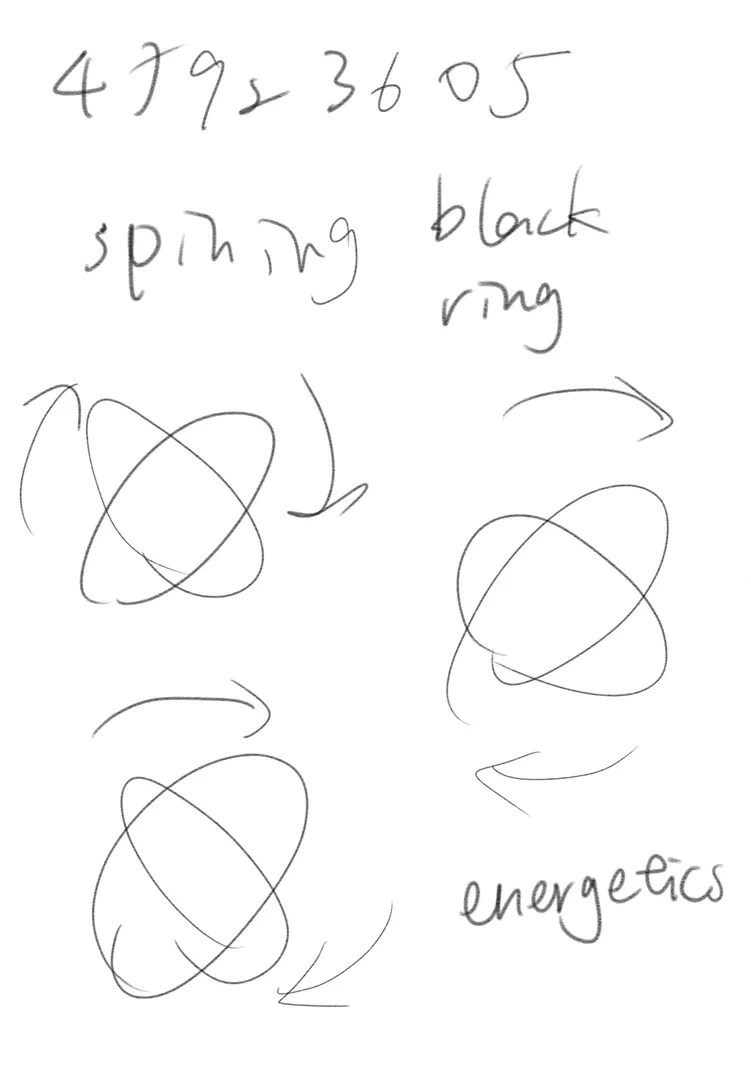 47923605
spining
black
ring
energetics